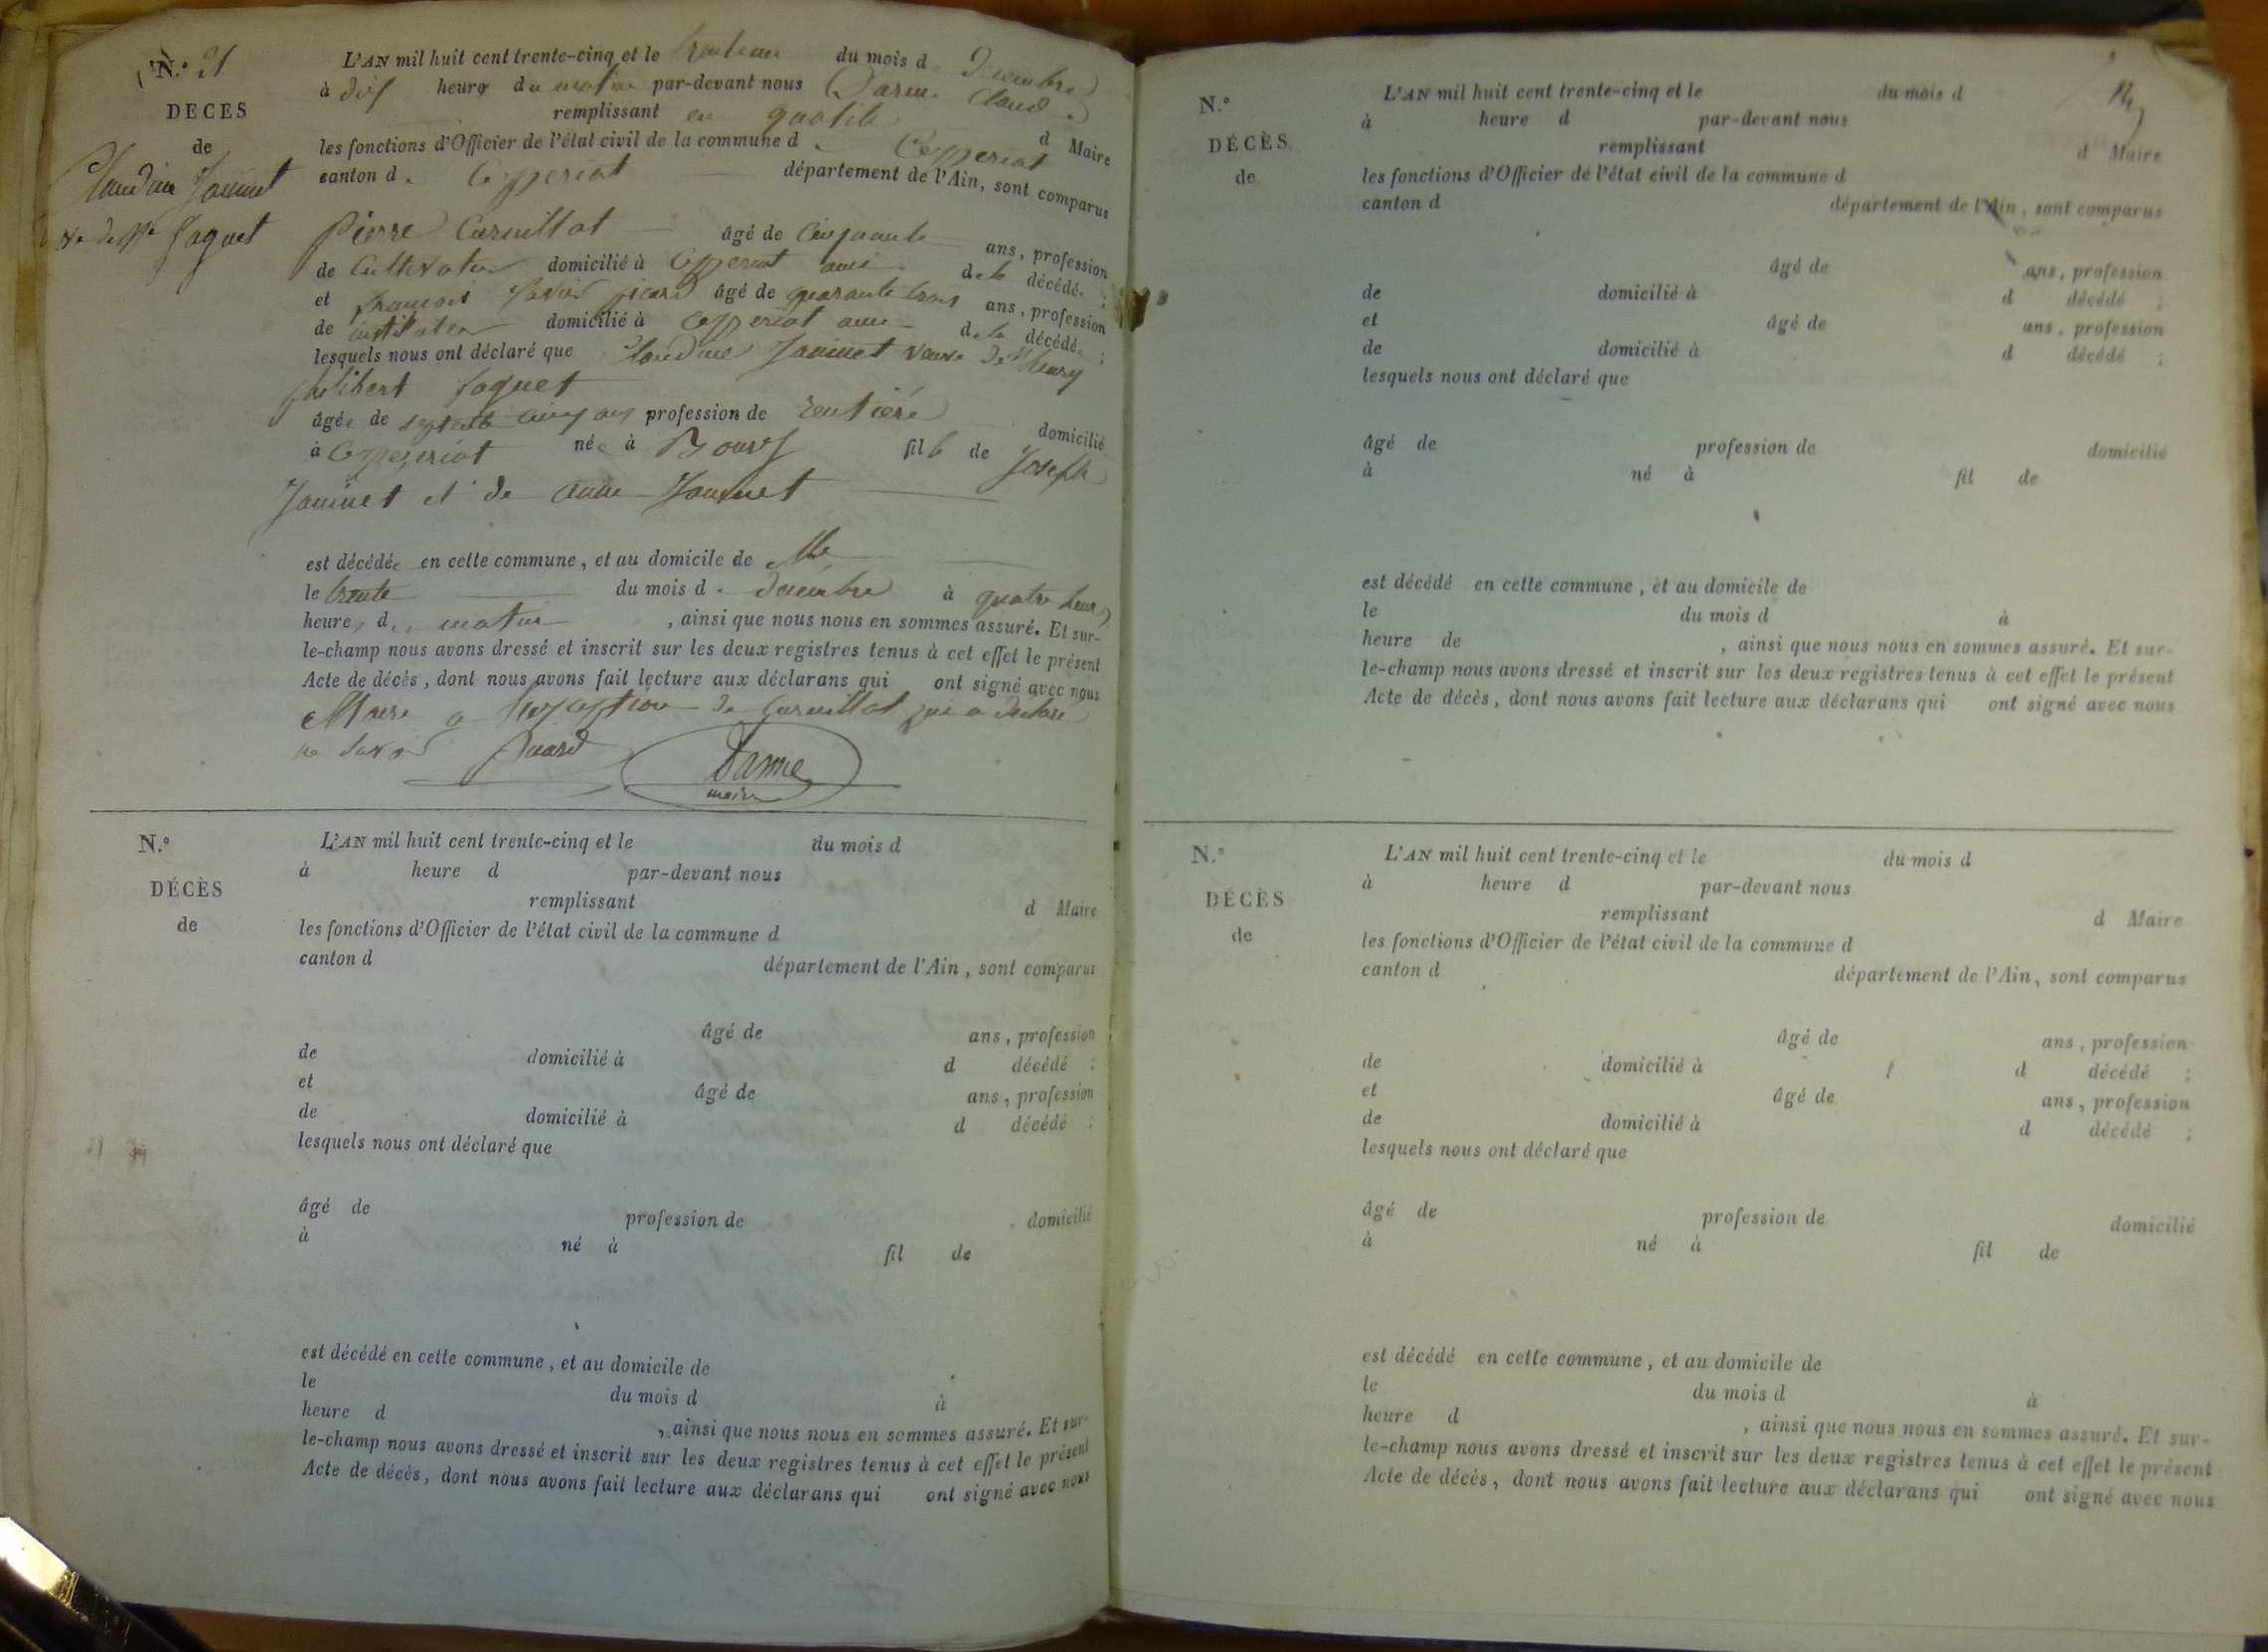 N.° 21
DECES
de
Claudine Jauinet
Ve de Ph Faguet
L'AN mil huit cent trente-cinq et le trente un du mois d Decembre
à dix heures du matin par-devant nous Darme Claude
remplissant en qualité d Maire
les fonctions d'Officier de l'état civil de la commune d. Ceyzeriat
canton d. Ceyzeriat département de l'Ain, sont comparus
Pierre Curnillat âgé de Cinquante ans, profession
de Cultivateur domicilié à Ceyzeriat ami de la décédée ;
et francois Xavier picard âgé de quarante trois ans, profession
de instituteur domicilié à Ceyzeriat ami de la décédée ;
lesquels nous ont déclaré que Claudine Jauinet veuve De Thenry
philibert faguet
âgée de septente cinq ans profession de rentière domicilié
à Ceyzeriat née à Bourg fille de Joseph
Jauinet et de anne Jauinet
est décédée en cette commune, et au domicile de elle
le trente du mois d. Decembre à quatre heures
heure, du matin , ainsi que nous nous en sommes assuré. Et sur-
le-champ nous avons dressé et inscrit sur les deux registres tenus à cet effet le présent
Acte de décès, dont nous avons fait lecture aux déclarans qui ont signé avec nous
Maire a l'exception de Curnillat qui a declaré
ne savoir picard Darme
maire
N.°
DÉCÈS
de
L'AN mil huit cent trente-cinq et le du mois d
à heure d par-devant nous
remplissant d Maire
les fonctions d'Officier de l'état civil de la commune d
canton d département de l'Ain, sont comparus
âgé de ans, profession
de domicilié à d décédé ;
et âgé de ans, profession
de domicilié à d décédé ;
lesquels nous ont déclaré que
âgé de profession de domicilié
à né à fil de
est décédé en cette commune, et au domicile de
le du mois d à
heure d , ainsi que nous nous en sommes assuré. Et sur-
le-champ nous avons dressé et inscrit sur les deux registres tenus à cet effet le présent
Acte de décès, dont nous avons fait lecture aux déclarans qui ont signé avec nous
N.°
DÉCÈS
de
L'AN mil huit cent trente-cinq et le du mois d
à heure d par-devant nous
remplissant d Maire
les fonctions d'Officier de l'état civil de la commune d
canton d département de l'Ain, sont comparus
âgé de ans, profession
de domicilié à d décédé ;
et âgé de ans, profession
de domicilié à d décédé ;
lesquels nous ont déclaré que
âgé de profession de domicilié
à né à fil de
est décédé en cette commune, et au domicile de
le du mois d à
heure de , ainsi que nous nous en sommes assuré. Et sur-
le-champ nous avons dressé et inscrit sur les deux registres tenus à cet effet le présent
Acte de décès, dont nous avons fait lecture aux déclarans qui ont signé avec nous
N.°
DÉCÈS
de
L'AN mil huit cent trente-cinq et le du mois d
à heure d par-devant nous
remplissant d Maire
les fonctions d'Officier de l'état civil de la commune d
canton d département de l'Ain, sont comparus
âgé de ans, profession
de domicilié à d décédé ;
et âgé de ans, profession
de domicilié à d décédé ;
lesquels nous ont déclaré que
âgé de profession de domicilié
à né à fil de
est décédé en cette commune, et au domicile de
le du mois d à
heure d , ainsi que nous nous en sommes assuré. Et sur-
le-champ nous avons dressé et inscrit sur les deux registres tenus à cet effet le présent
Acte de décès, dont nous avons fait lecture aux déclarans qui ont signé avec nous